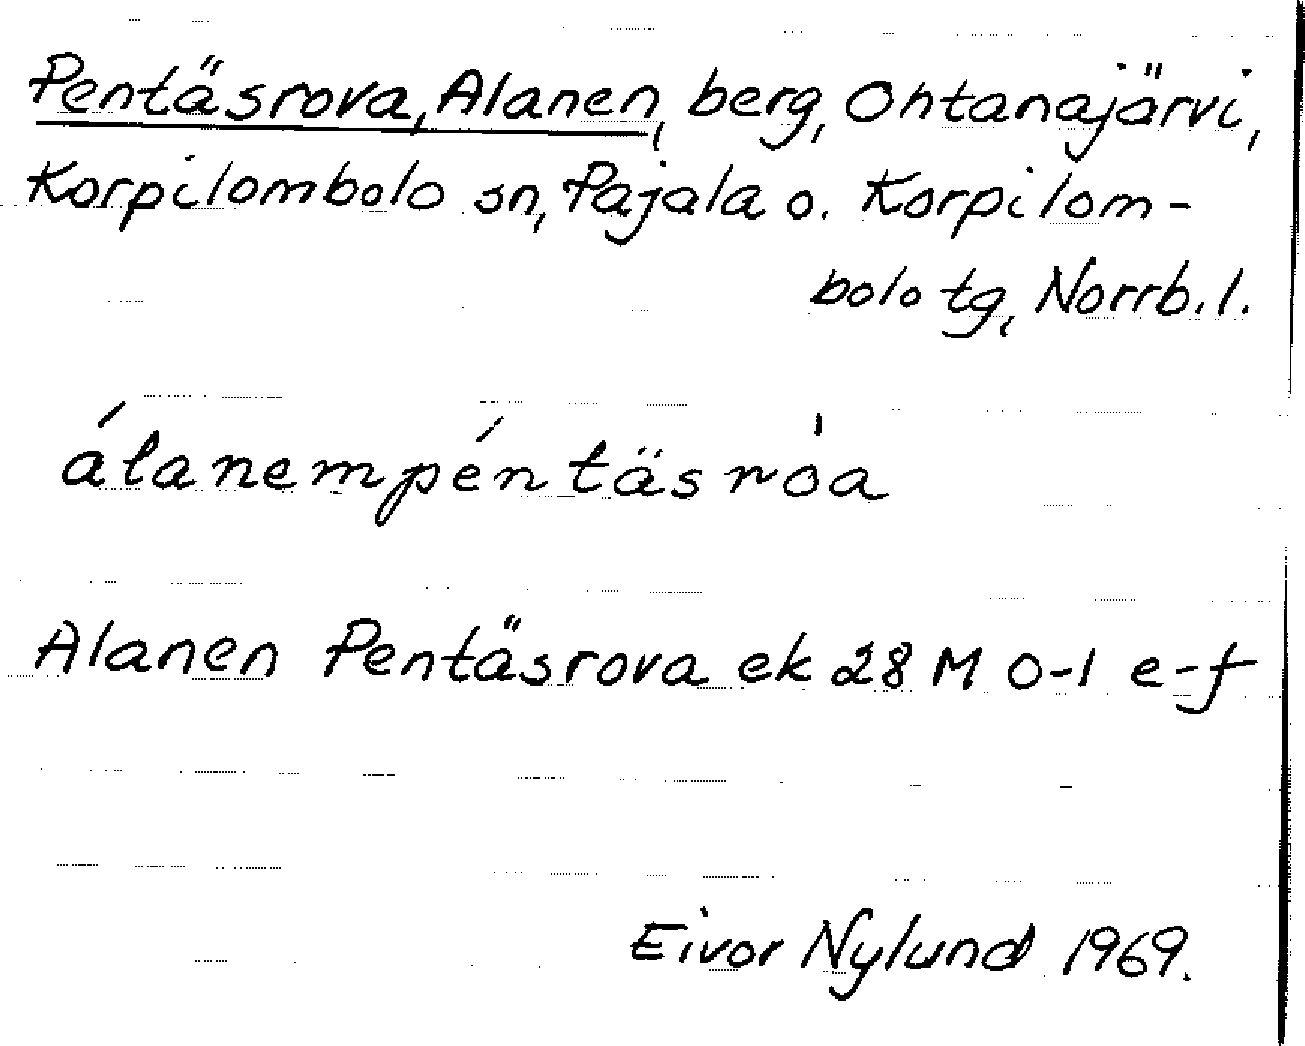 Pentäsrova, Alanen, berg, Ohtanajärvi,
Korpilombolo sn, Pajala o. Korpilom-
bolo tg, Norrb. l.
álanempéntäsròa
Alanen Pentäsrova ek 28 M 0-1 e-f
Eivor Nylund 1969.